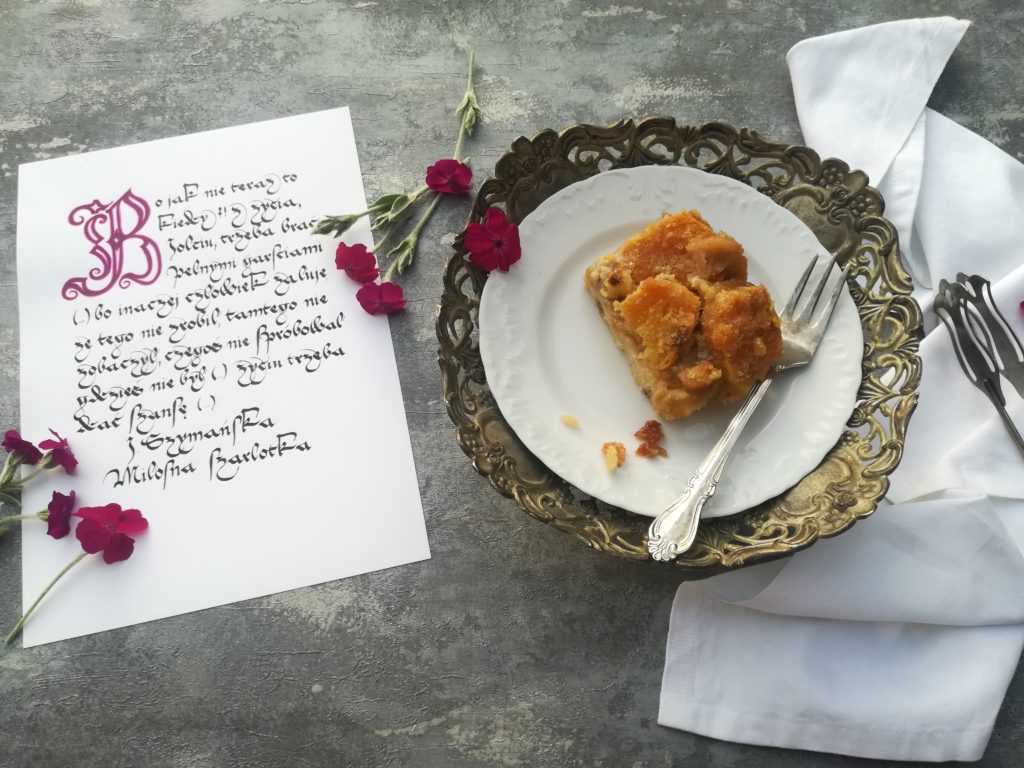 Bo jak nie teraz to
kiedy?! Z życia,
Jolciu, trzeba brać
pełnymi garściami
(..) bo inaczej człowiek żałuje
że tego nie zrobił, tamtego nie
zobaczył, czegoś nie spróbował
gdzieś nie był (..) życiu trzeba
dać szansę (..)
J Szymańska
Miłosna szarlotka